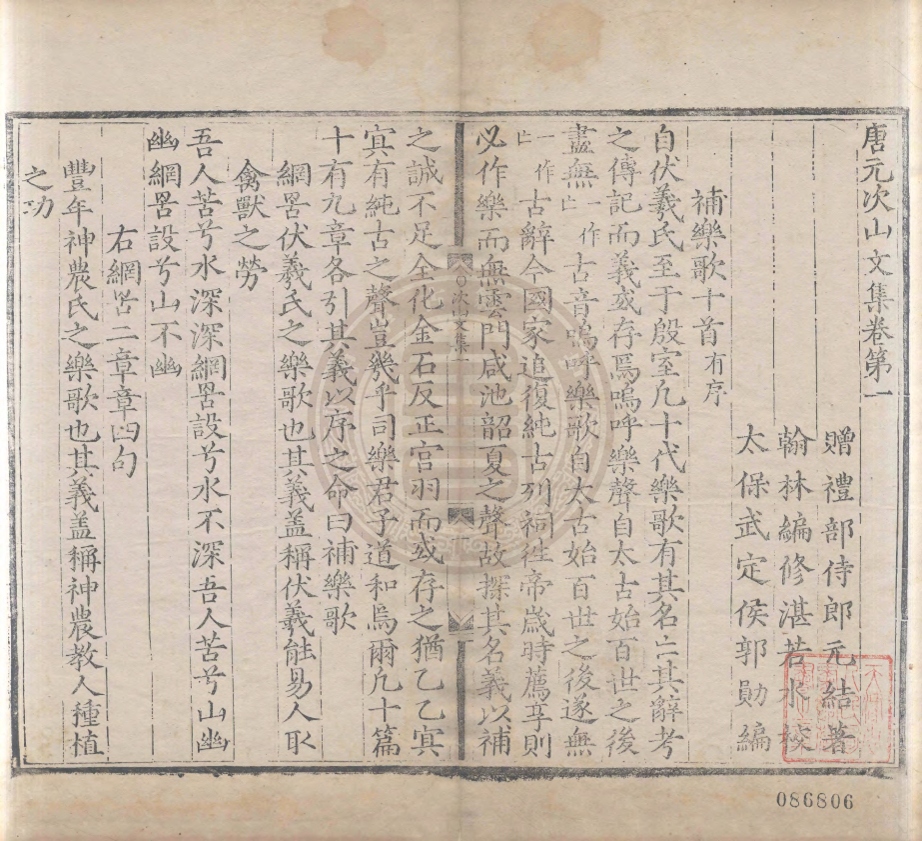 唐元次山文集卷第一
贈禮部侍郎元結著
翰林編修湛若水校
太保武定侯郭勛編
補樂歌十首有序
自伏羲氏至于殷室凡十代樂歌有其名亡其辭考
之傳記而義或存焉嗚呼樂聲自太古始百世之後
盡無一作亡古音嗚呼樂歌自太古始百世之後遂無
一作亡古辭今國家追復純古列祠徃帝歲時薦享則
必作樂而無雲門咸池韶夏之聲故探其名義以補
次山文集
一
之誠不足全化金石反正宮羽而或存之猶乙乙冥
冥有純古之聲豈幾乎司樂君子道和焉爾凡十篇
十有九章各引其義以序之命曰補樂歌
網罟伏羲氏之樂歌也其義盖稱伏羲能易人取
禽獸之勞
吾人苦兮水深深網罟設兮水不深吾人苦兮山幽
幽網罟設兮山不幽
右網罟二章章四句
豐年神農氏之樂歌也其義盖稱神農教人種植
之功
086806